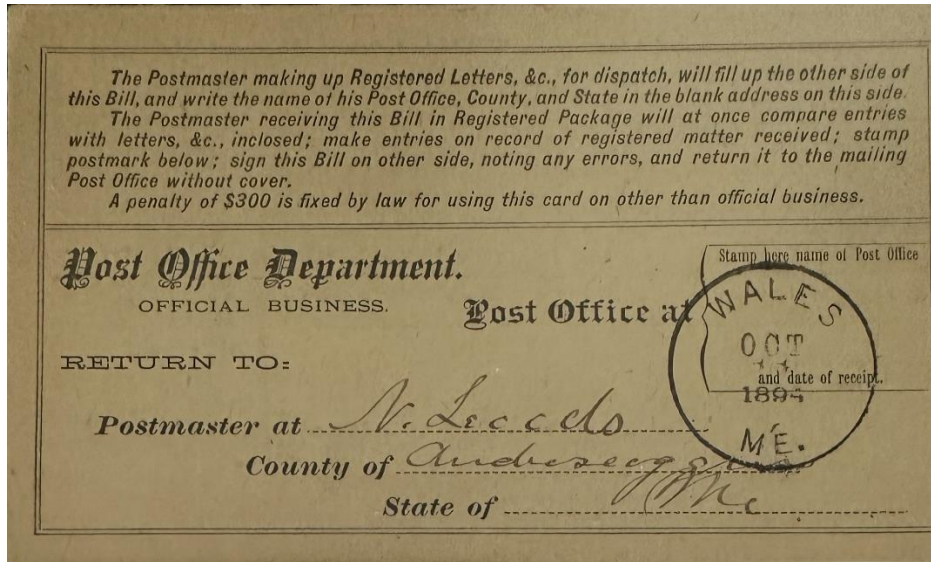 The Postmaster making up Registered Letters, &c., for dispatch, will fill up the other side of
this Bill, and write the name of his Post Office, County, and State in the blank address on this side.
The Postmaster receiving this Bill in Registered Package will at once compare entries
with letters, &c., inclosed; make entries on record of registered matter received; stamp
postmark below; sign this Bill on other side, noting any errors, and return it to the mailing
Post Office without cover.
A penalty of $300 is fixed by law for using this card on other than official business.
Post Office Department.
OFFICIAL BUSINESS.
Post Office at
Stamp here name of Post Office
and date of receipt.
WALES
OCT
1894
ME.
RETURN TO:
Postmaster at N. Leeds
County of Androscoggin
State of Me